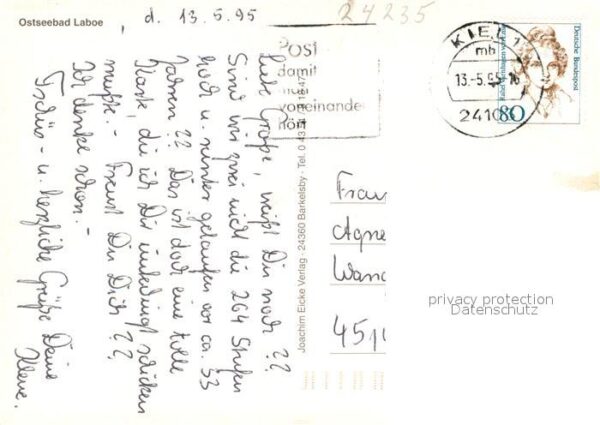 Ostseebad Laboe
d. 13.5.95
24235
Liebe Große, weißt Du noch??
Sind wir zwei nicht die 264 Stufen
hoch u. runter gelaufen vor ca. 53
Jahren?? Das ist doch eine tolle
Karte, die ich Dir unbedingt schicken
mußte. - Freust Du Dich??
Ich denke schon. -
Tschüs - u. herzliche Grüße Deine
Post
damit
voneinander
hört
Joachim Eicke Verlag · 24360 Barkelsby · Tel. 0 43
KIEL 1
mb
13.-5.95-16
24103
Deutsche Bundespost
80
Frau
Agne
Wand
451
privacy protection
Datenschutz